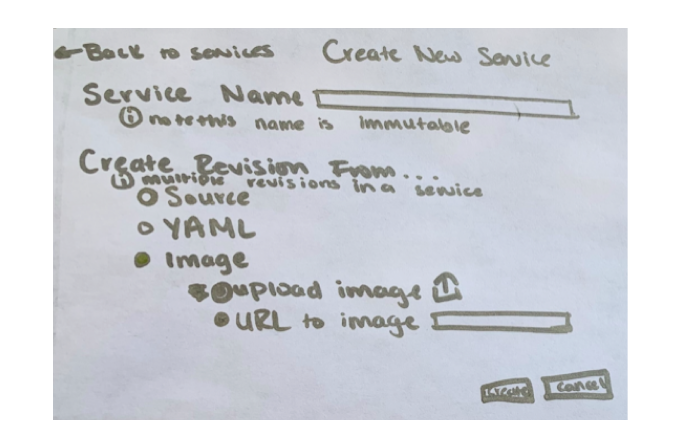 ← Back to services Create New Service
Service Name
ⓘ note this name is immutable
Create Revision From...
ⓘ multiple revisions in a service
Source
YAML
Image
upload image
URL to image
Create Cancel